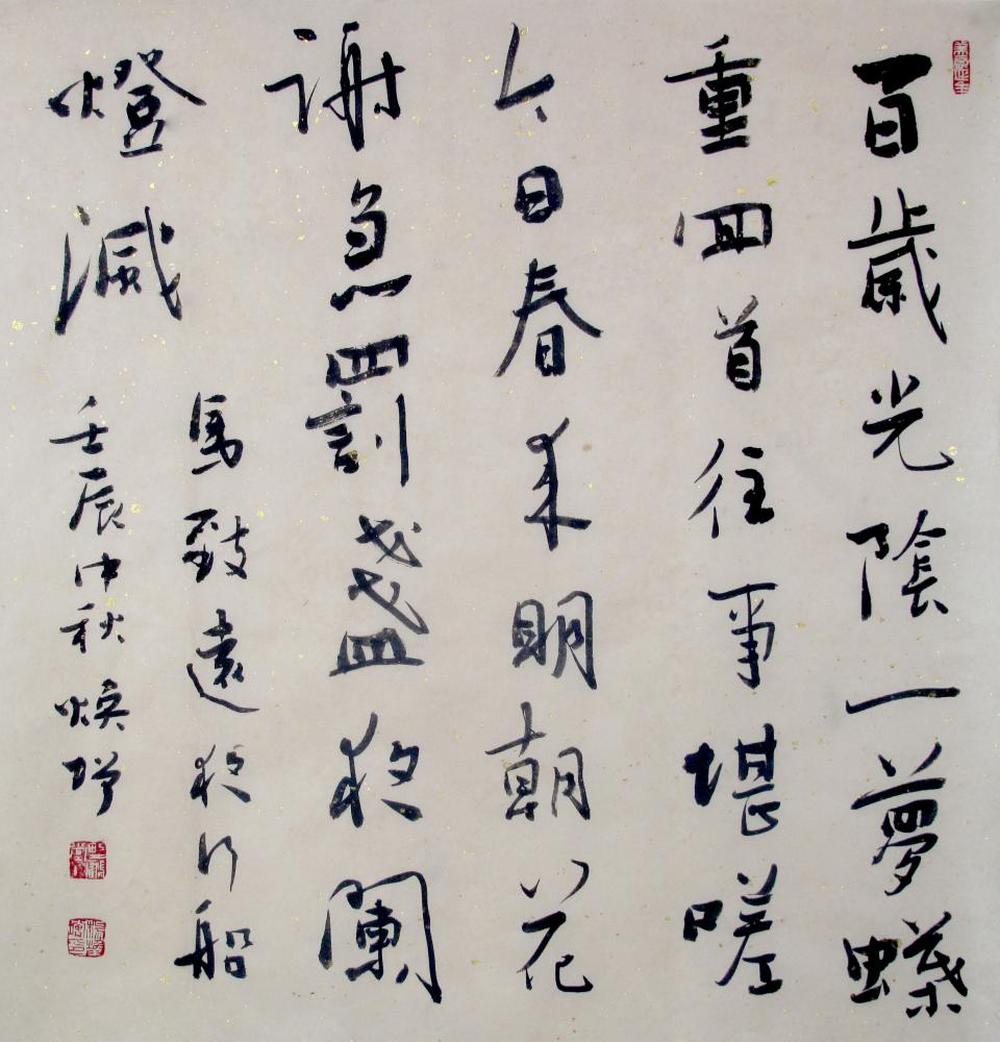 百歲光陰一夢蝶
重回首往事堪嗟
今日春来明朝花
謝急罰盞夜闌
燈滅
馬致遠夜行船
壬辰中秋焕增